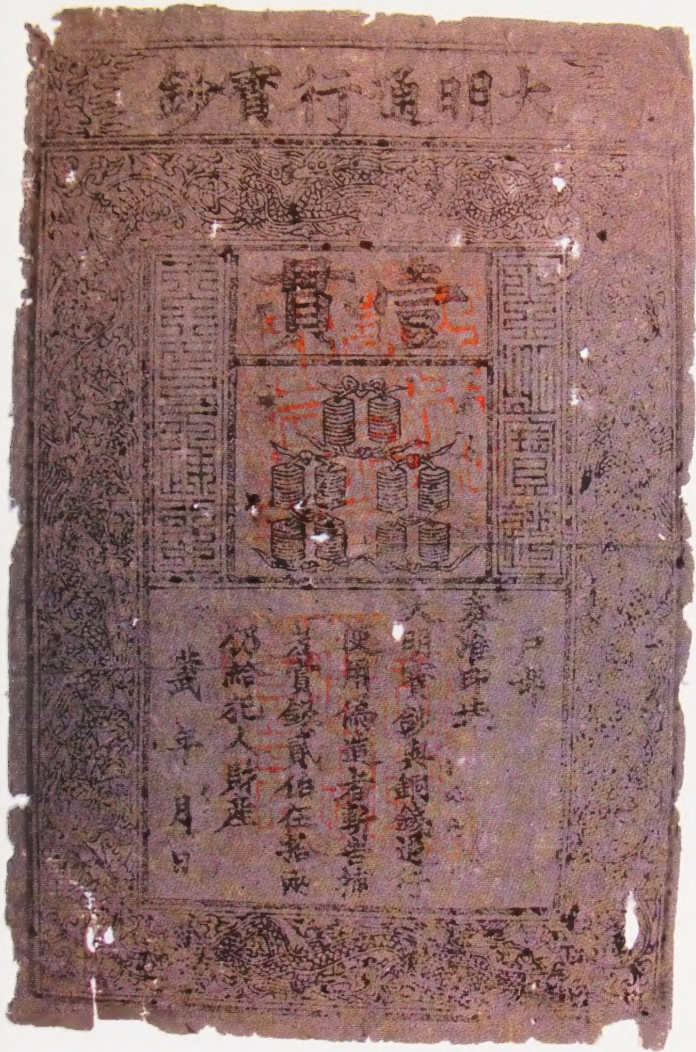 大明通行寶鈔
壹貫
戶部
奏准印造
大明寶鈔與銅錢通行
使用偽造者斬告捕
者賞銀貳伯伍拾兩
仍給犯人財產
武 年 月 日